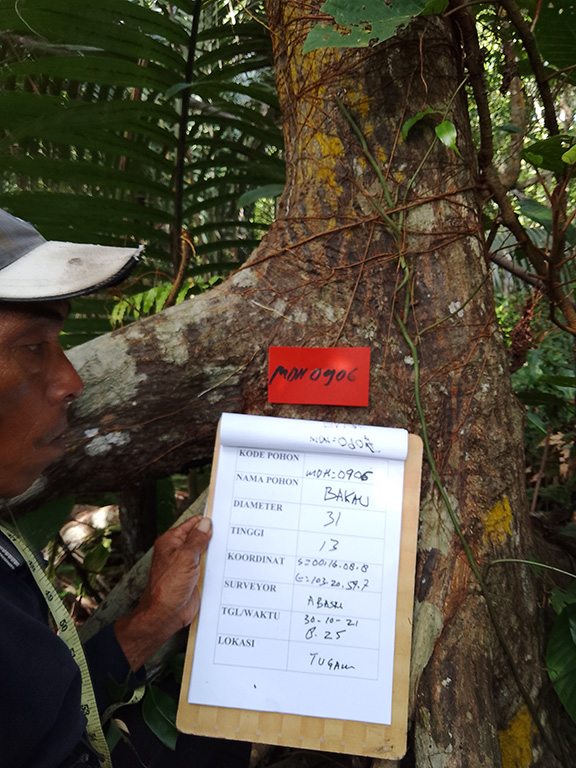 MDH 0906
KODE POHON MDH=0906
NAMA POHON BAKAU
DIAMETER 31
TINGGI 13
KOORDINAT S=00.16.08.8
E=103.20.59.7
SURVEYOR ABASRI
TGL/WAKTU 30-10-21
8.25
LOKASI TUGAU